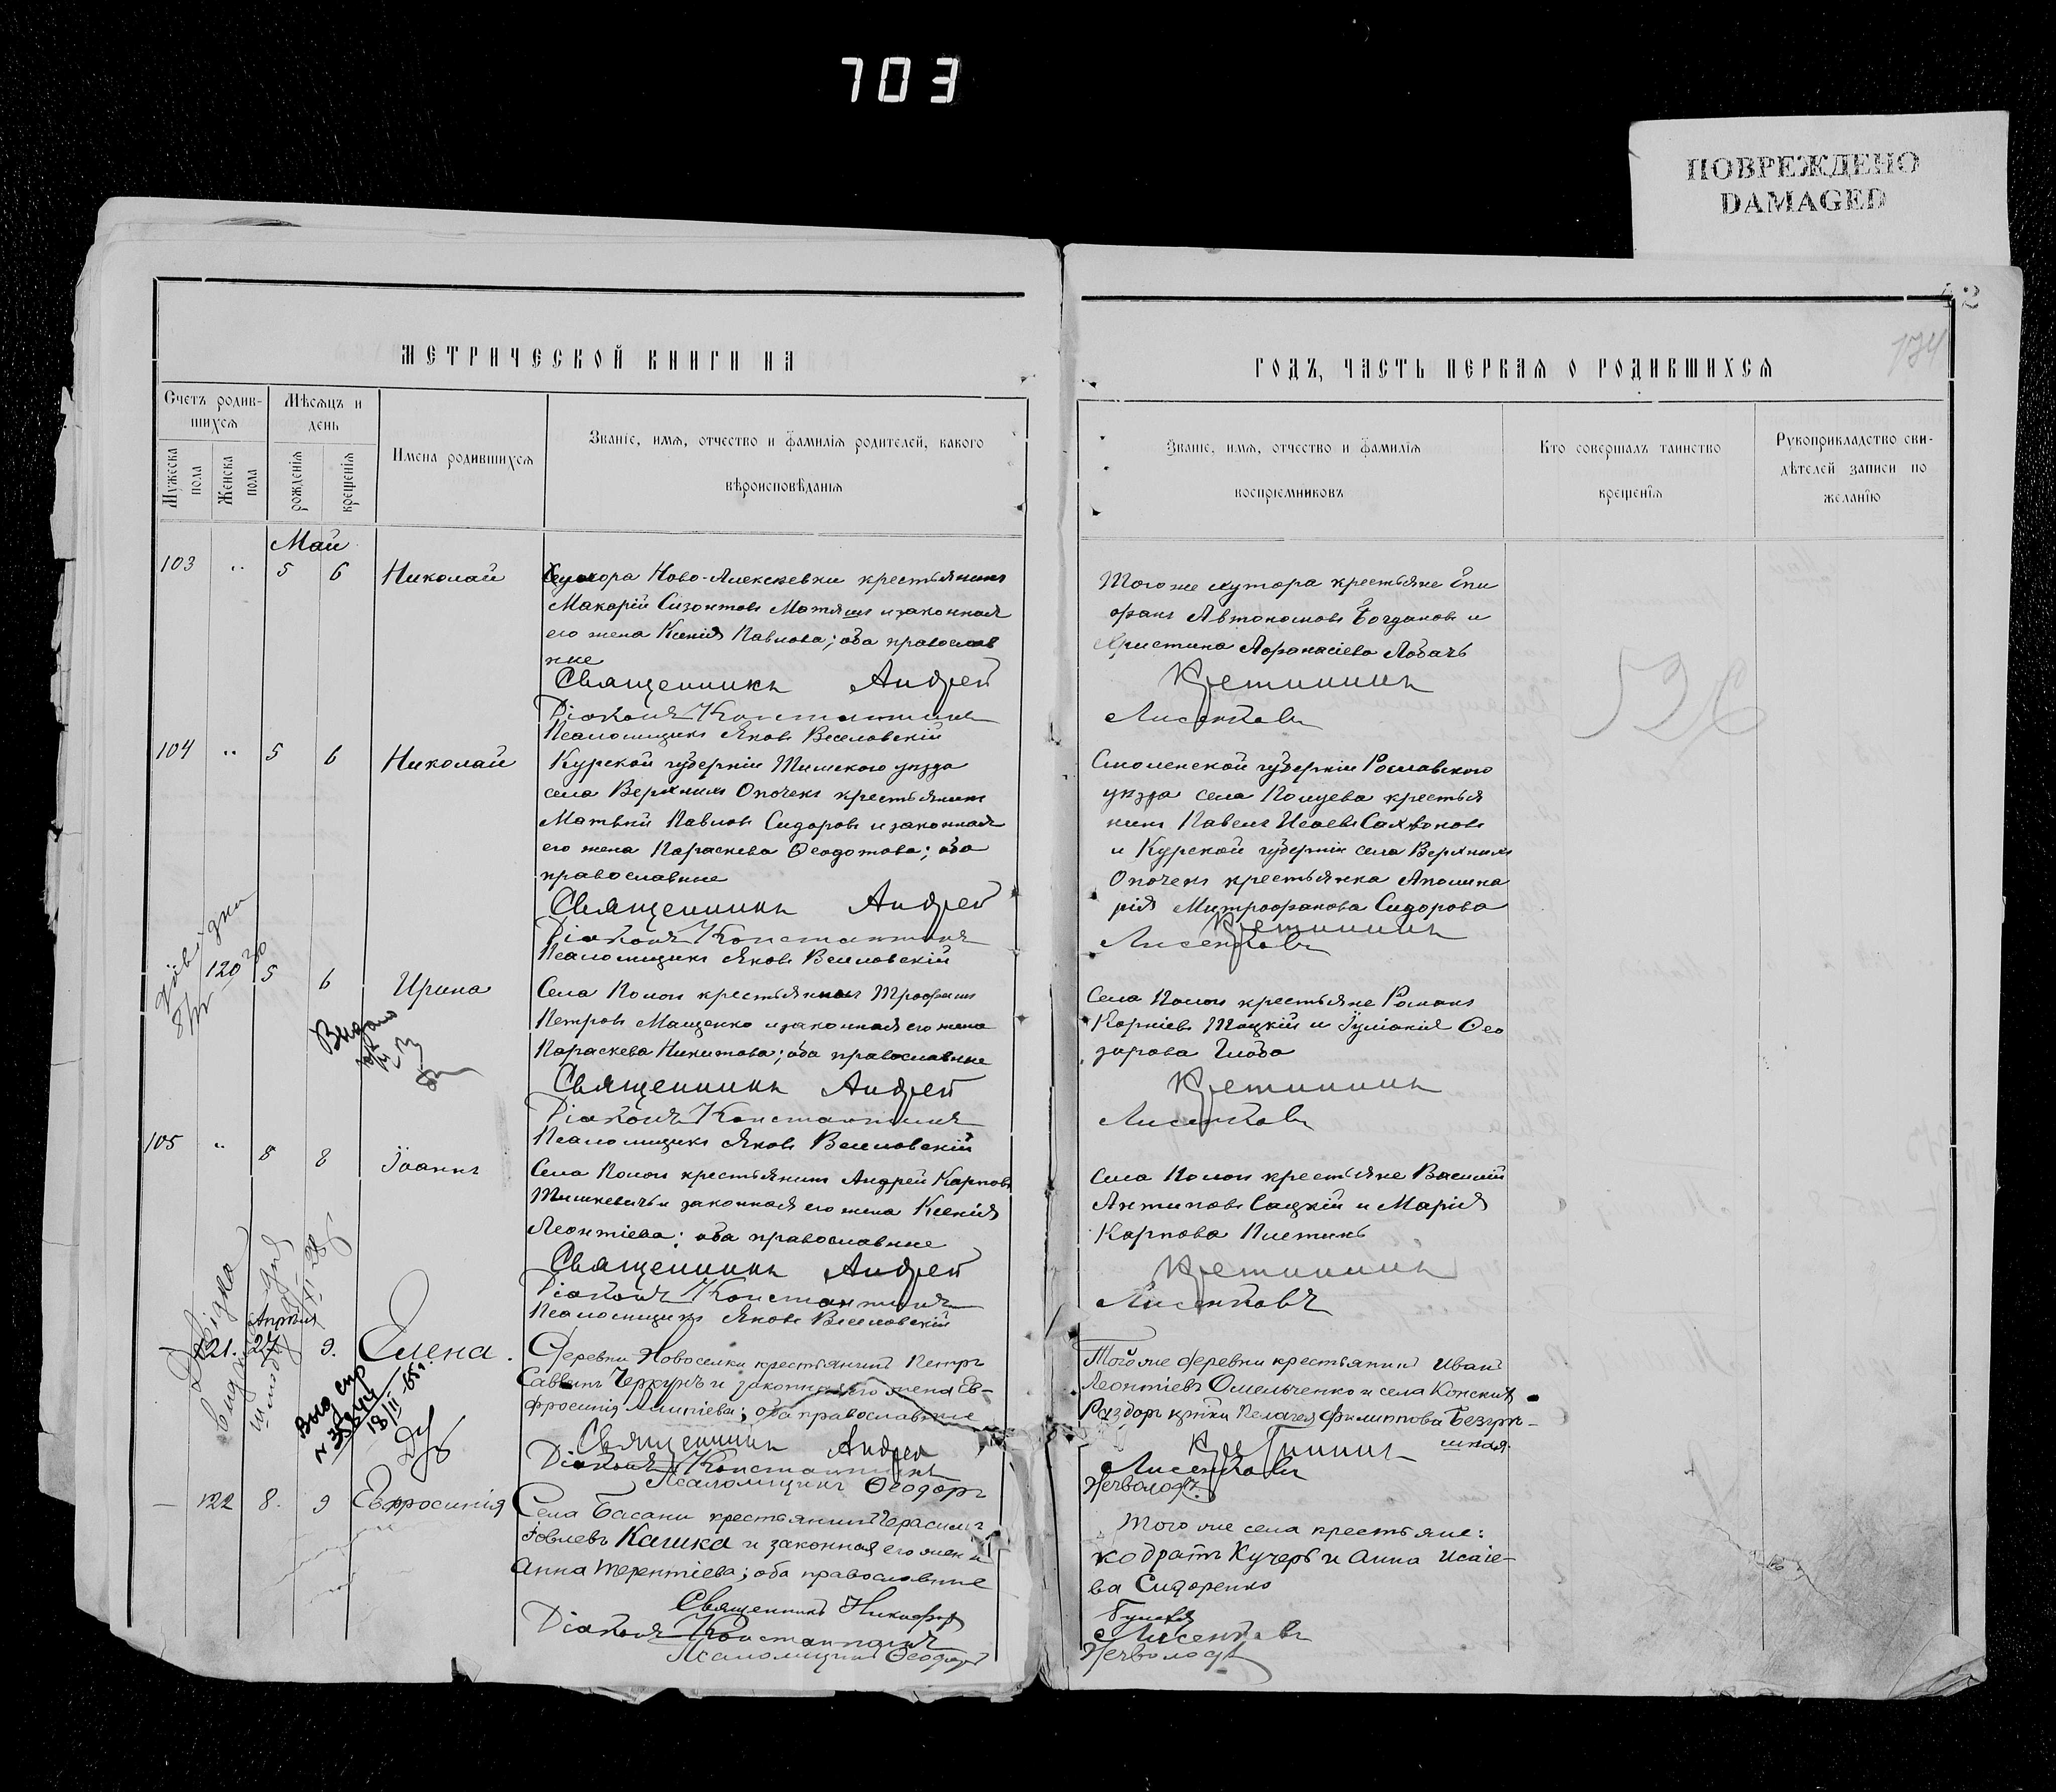 703
ПОВРЕЖДЕНО
DAMAGED
МЕТРИЧЕСКОЙ КНИГИ НА
Счетъ родив-
шихся
Мѣсяцъ и
день
Имена родившихся
Званіе, имя, отчество и фамилія родителей, какого
вѣроисповѣданія
Мужеска
пола
Женска
пола
рожденія
крещенія
Май
103 " 5 6 Николай
Хутора Ново-Алексеевки крестьянинъ
Макарій Сизонтовъ Матяшъ и законная
его жена Ксенія Павлова; оба православ
ные
Священникъ Андрей
Діаконъ Константинъ
Псаломщикъ Яковъ Веселовскій
104 " 5 6 Николай
Курской губерніи Тимского уѣзда
села Верхнихъ Опочекъ крестьянинъ
Матвѣй Павловъ Сидоровъ и законная
его жена Параскева Ѳеодотова; оба
православные
Священникъ Андрей
Діаконъ Константинъ
Псаломщикъ Яковъ Веселовскій
120 5 6 Ирина
Села Пологи крестьянинъ Трофимъ
Петровъ Мащенко и законная его жена
Параскева Никитова; оба православные
Священникъ Андрей
Діаконъ Константинъ
Псаломщикъ Яковъ Веселовскій
Выдано
105 " 5 8 Іоаннъ
Села Пологи крестьянинъ Андрей Карповъ
Тишкевичъ и законная его жена Ксенія
Леонтіева; оба православные
Священникъ Андрей
Діаконъ Константинъ
Псаломщикъ Яковъ Веселовскій
Апрѣля
121. 27 9. Елена.
Деревни Новоселки крестьянинъ Петръ
Саввинъ Черкунъ и законная его жена Ев-
фросинія; оба православные
Священникъ Андрей
Діаконъ Константинъ
Псаломщикъ Ѳеодоръ
Выд спр
18/II-65г.
— 122 8. 9 Евфросинія
Села Басани крестьянинъ Герасимъ
Іовлевъ Кашка и законная его жена
Анна Терентіева; оба православные
Священникъ Никифоръ
Діаконъ Константинъ
Псаломщикъ Ѳеодоръ
ГОДЪ, ЧАСТЬ ПЕРВАЯ О РОДИВШИХСЯ
Званіе, имя, отчество и фамилія
воспріемниковъ
Кто совершалъ таинство
крещенія
Рукоприкладство сви-
дѣтелей записи по
желанію
Того же хутора крестьяне Епи
фанъ Автономовъ Богдановъ и
Христина Афанасіева Лобачъ
Кретининъ
Лисенковъ
526
Смоленской губерніи Рославского
уѣзда села крестья
нинъ Павелъ Исаевъ
и Курской губерніи села Верхнихъ
Опочекъ крестьянка Аполина
рія Митрофанова Сидорова
Кретининъ
Лисенковъ
Села Пологи крестьяне Романъ
Корніевъ и Іуліанія Ѳео
дорова Глоба
Кретининъ
Лисенковъ
Села Пологи крестьяне Василій
Антиповъ Сацкій и Марія
Карпова
Кретининъ
Лисенковъ
Того же деревни крестьянинъ Иванъ
Леонтіевъ Омельченко и села Конскихъ
Раздоръ Пелагея Филиппова
Кретининъ
Лисенковъ
Нечволодъ
Того же села крестьяне:
Кодратъ Кучеръ и Анна Исаіе-
ва Сидоренко
Лисенковъ
Нечволодъ